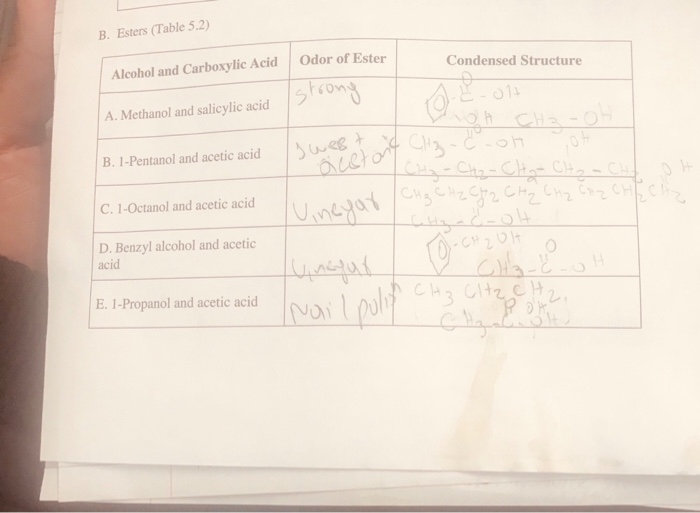 B. Esters (Table 5.2)
Alcohol and Carboxylic Acid
Odor of Ester
Condensed Structure
A. Methanol and salicylic acid
strong
O
-C-OH
OH CH3-OH
B. 1-Pentanol and acetic acid
sweet
acetone
O
CH3-C-OH
OH
CH3-CH2-CH2-CH2-CH2
C. 1-Octanol and acetic acid
Vinegar
OH
CH3CH2CH2CH2CH2CH2CH2CH2
O
CH3-C-OH
D. Benzyl alcohol and acetic
acid
Vinegar
-CH2OH
O
CH3-C-OH
E. 1-Propanol and acetic acid
Nail polish
CH3CH2CH2
OH
O
CH3-C-OH